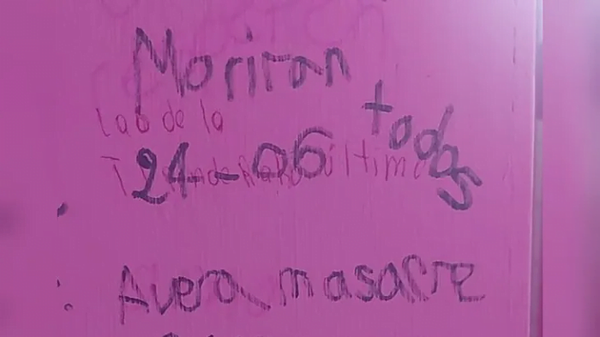 Moriran
todas
lao de la
24-06
último
Avera masacre